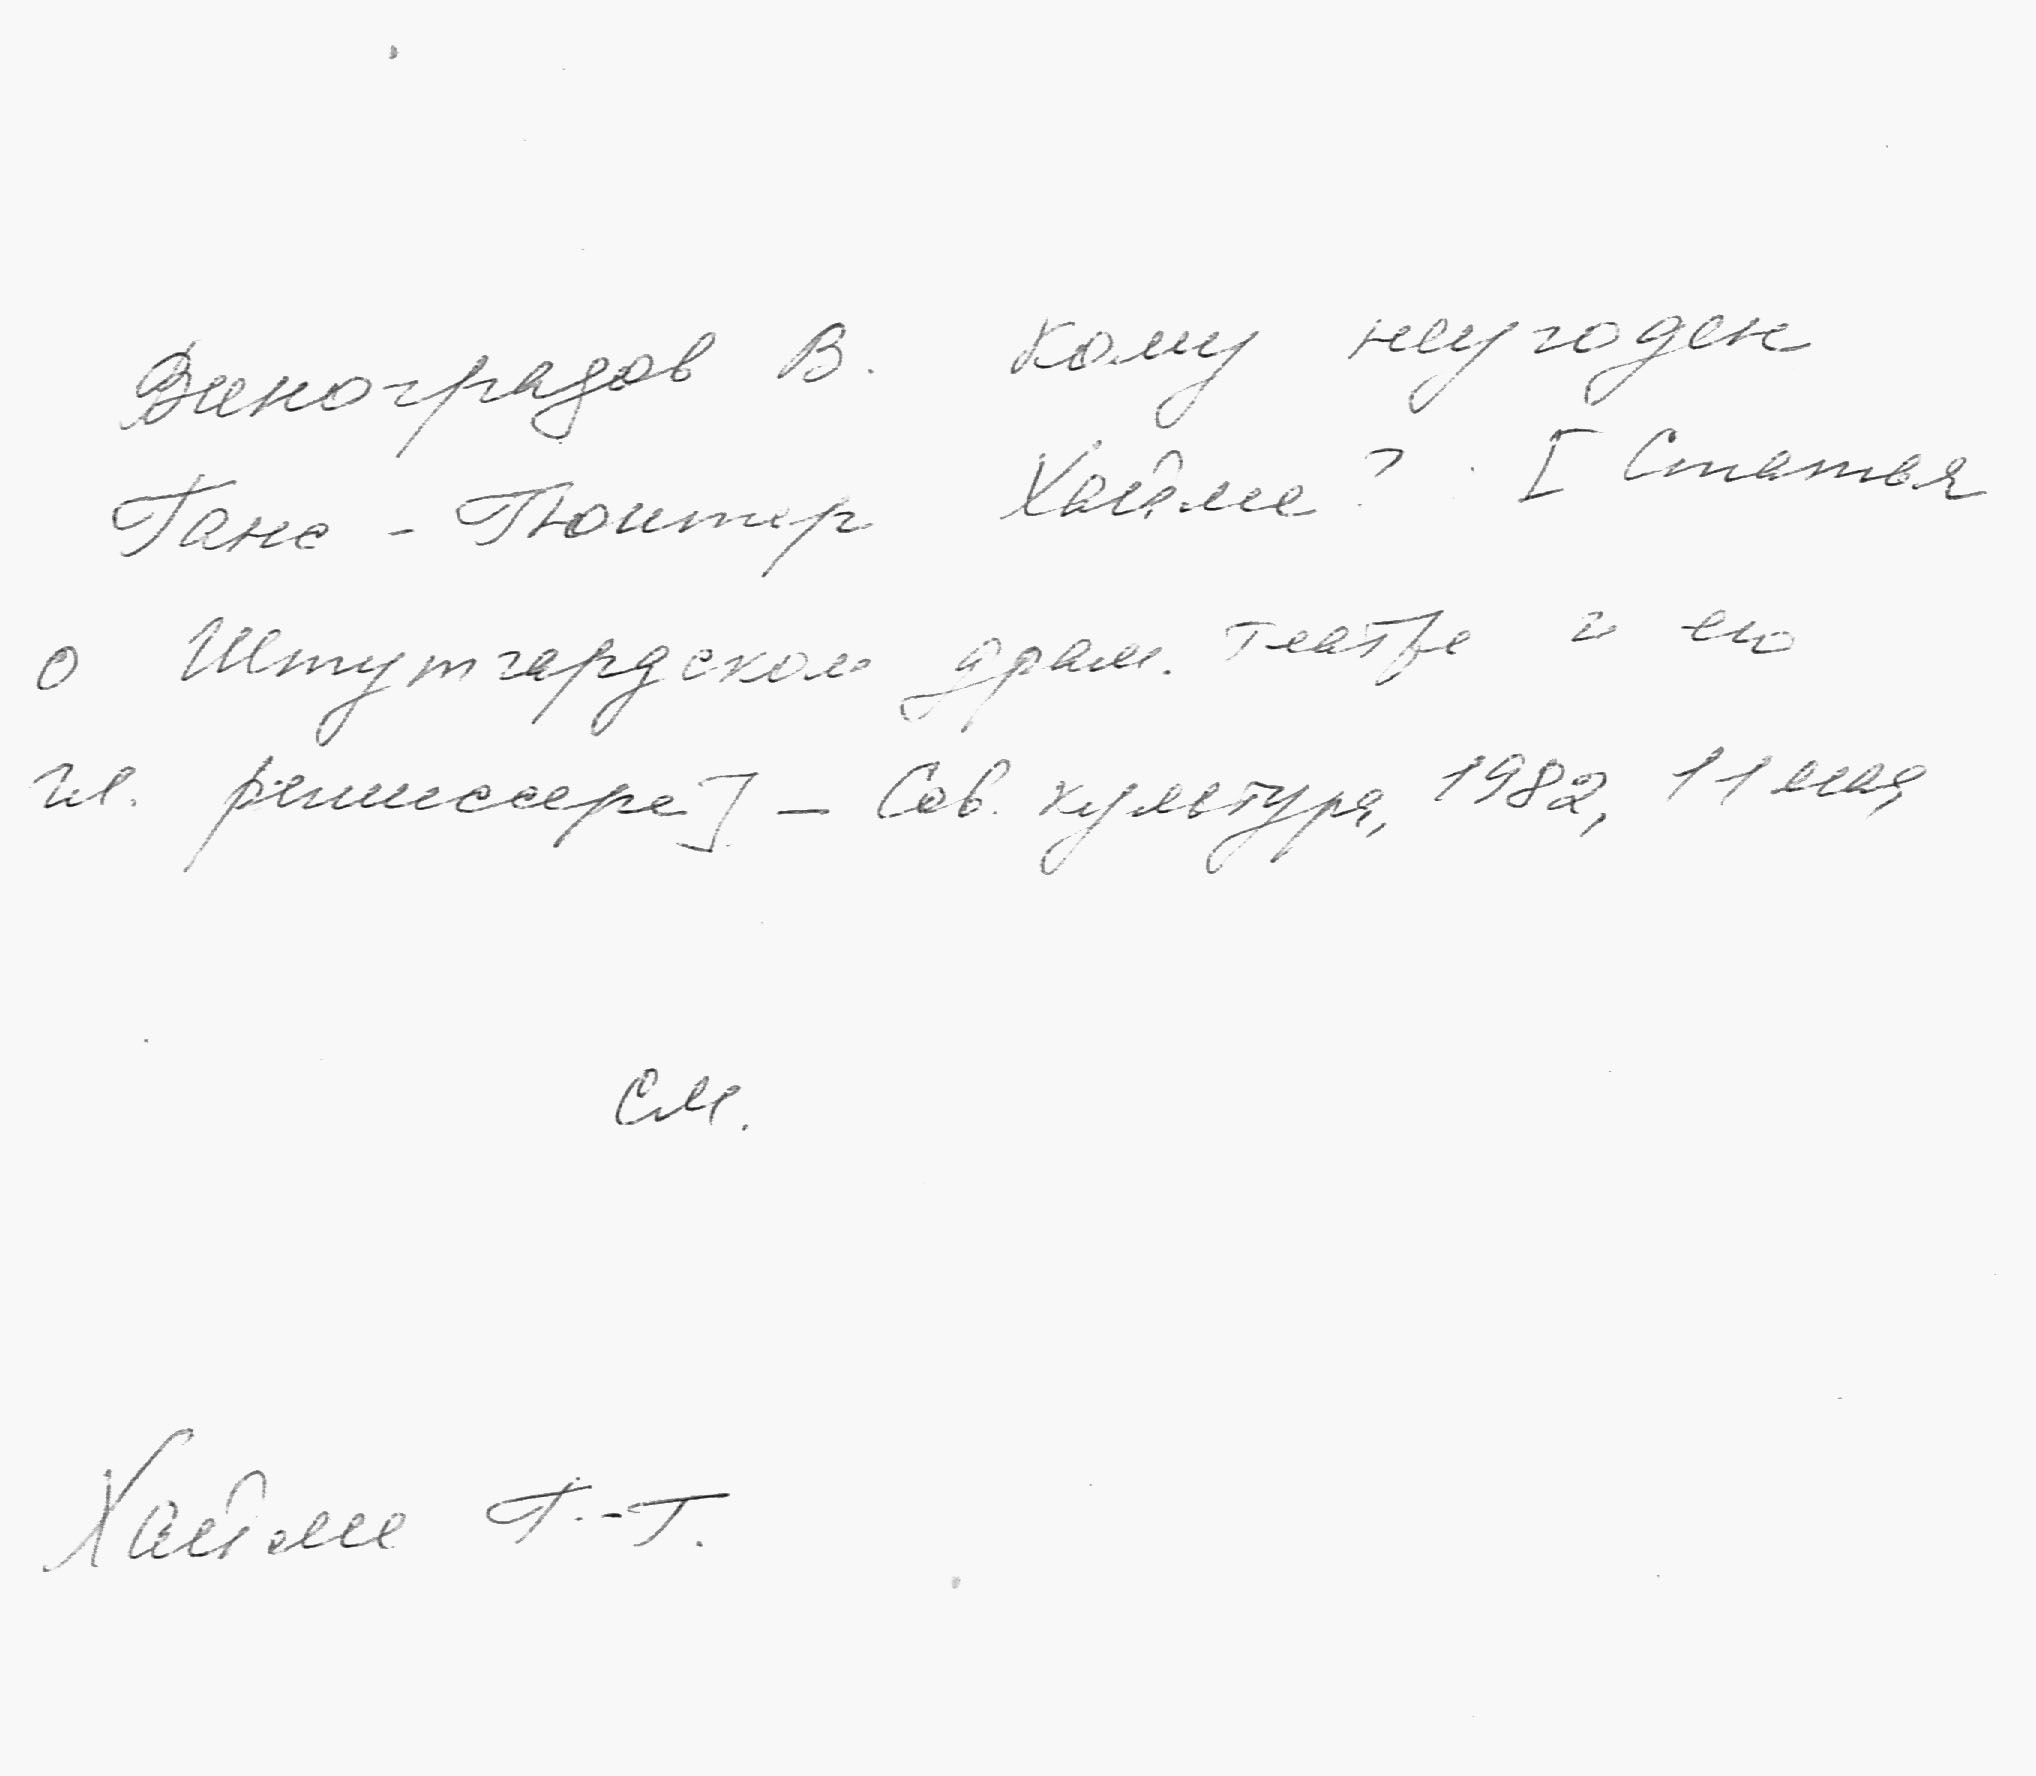 Виноградов В. Кому неугоден
Ганс-Гюнтер Хайме? [Статья
о Штутгардском драм. театре и его
гл. режиссере] – Сов. культура, 1982, 11 мая
см.
Хайме Г.-Г.